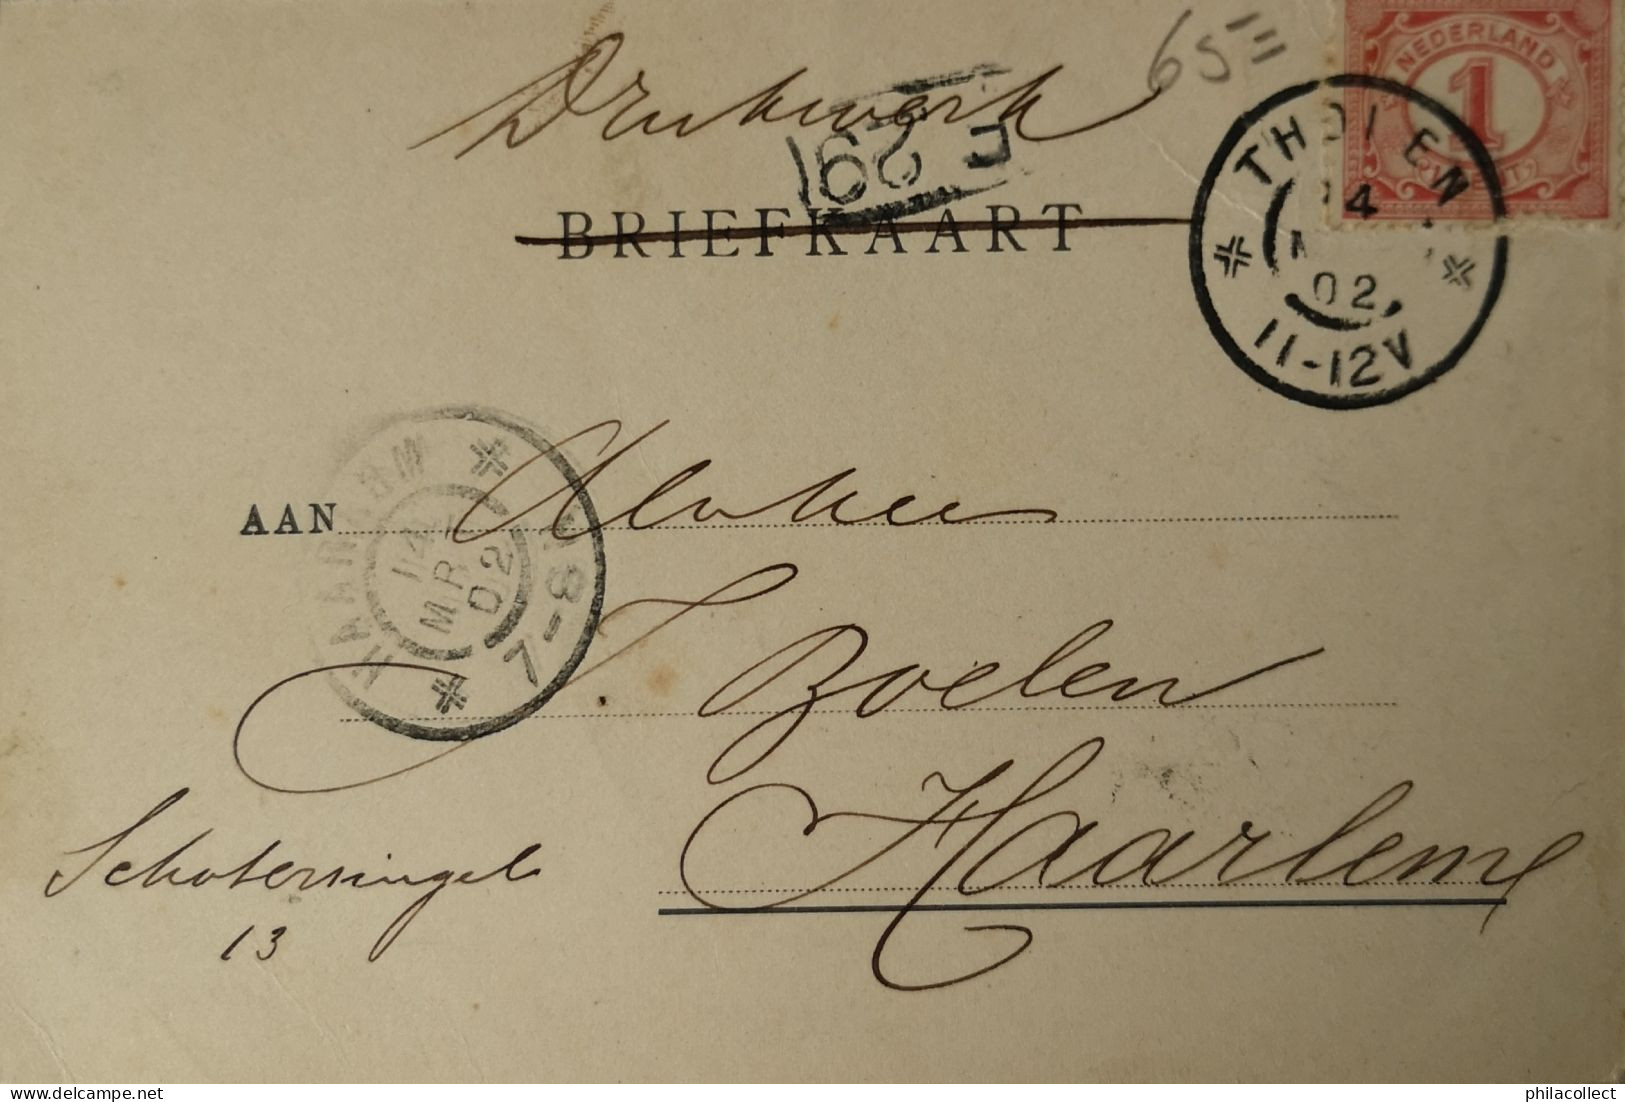 Drukwerk
65
NEDERLAND
1
CENT
THOLEN
14
02
11-12V
E 29
BRIEFKAART
HAARLEM
14 MRT 02
7-8
AAN
J. Zoelen
Haarlem
Schotersingel
13
philacollect
delcampe.net